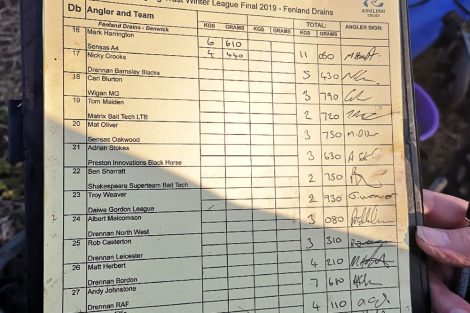 Winter League Final 2019 - Fenland Drains
ANGLING TRUST
Db Angler and Team KGS GRAMS KGS GRAMS TOTAL: KGS GRAMS ANGLER SIGN:
Fenland Drains - Benwick
16 Mark Harrington
Sensas A4 6 610
17 Nicky Crooks 4 440 11 050
Drennan Barnsley Blacks 5 430
18 Carl Burton
Wigan MG 3 790
19 Tom Maiden
Matrix Bait Tech LTB 2 720
20 Mat Oliver
Sensas Oakwood 3 750
21 Adrian Stokes
Preston Innovations Black Horse 3 630
22 Ben Sharratt
Shakespeare Superteam Bait Tech 2 750
23 Troy Weaver
Daiwa Gordon League 2 930
24 Albert Malcomson
Drennan North West 3 080
25 Rob Casterton
Drennan Leicester 3 310
26 Matt Herbert 4 210
Drennan Bordon 7 680
27 Andy Johnstone
Drennan RAF 4 110